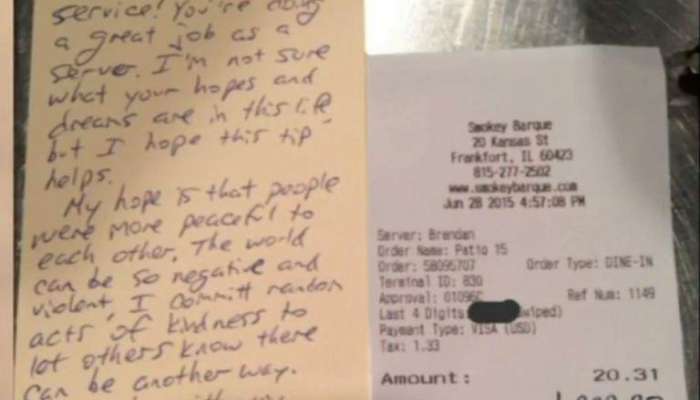 service! You're doing
a great job as a
server. I'm not sure
what your hopes and
dreams are in this life,
but I hope this tip
helps.
My hope is that people
were more peaceful to
each other. The world
can be so negative and
violent, I committ random
acts of kindness to
lot others know there
can be another way.
Smokey Barque
20 Kansas St
Frankfort, IL 60423
815-277-2502
www.smokeybarque.com
Jun 28 2015 4:57:08 PM
Server: Brendan
Order Name: Patio 15
Order: 58095707 Order Type: DINE-IN
Terminal ID: 830
Approval: 01096 Ref Num: 1149
Last 4 Digits wiped)
Payment Type: VISA (USD)
Tax: 1.33
Amount: 20.31